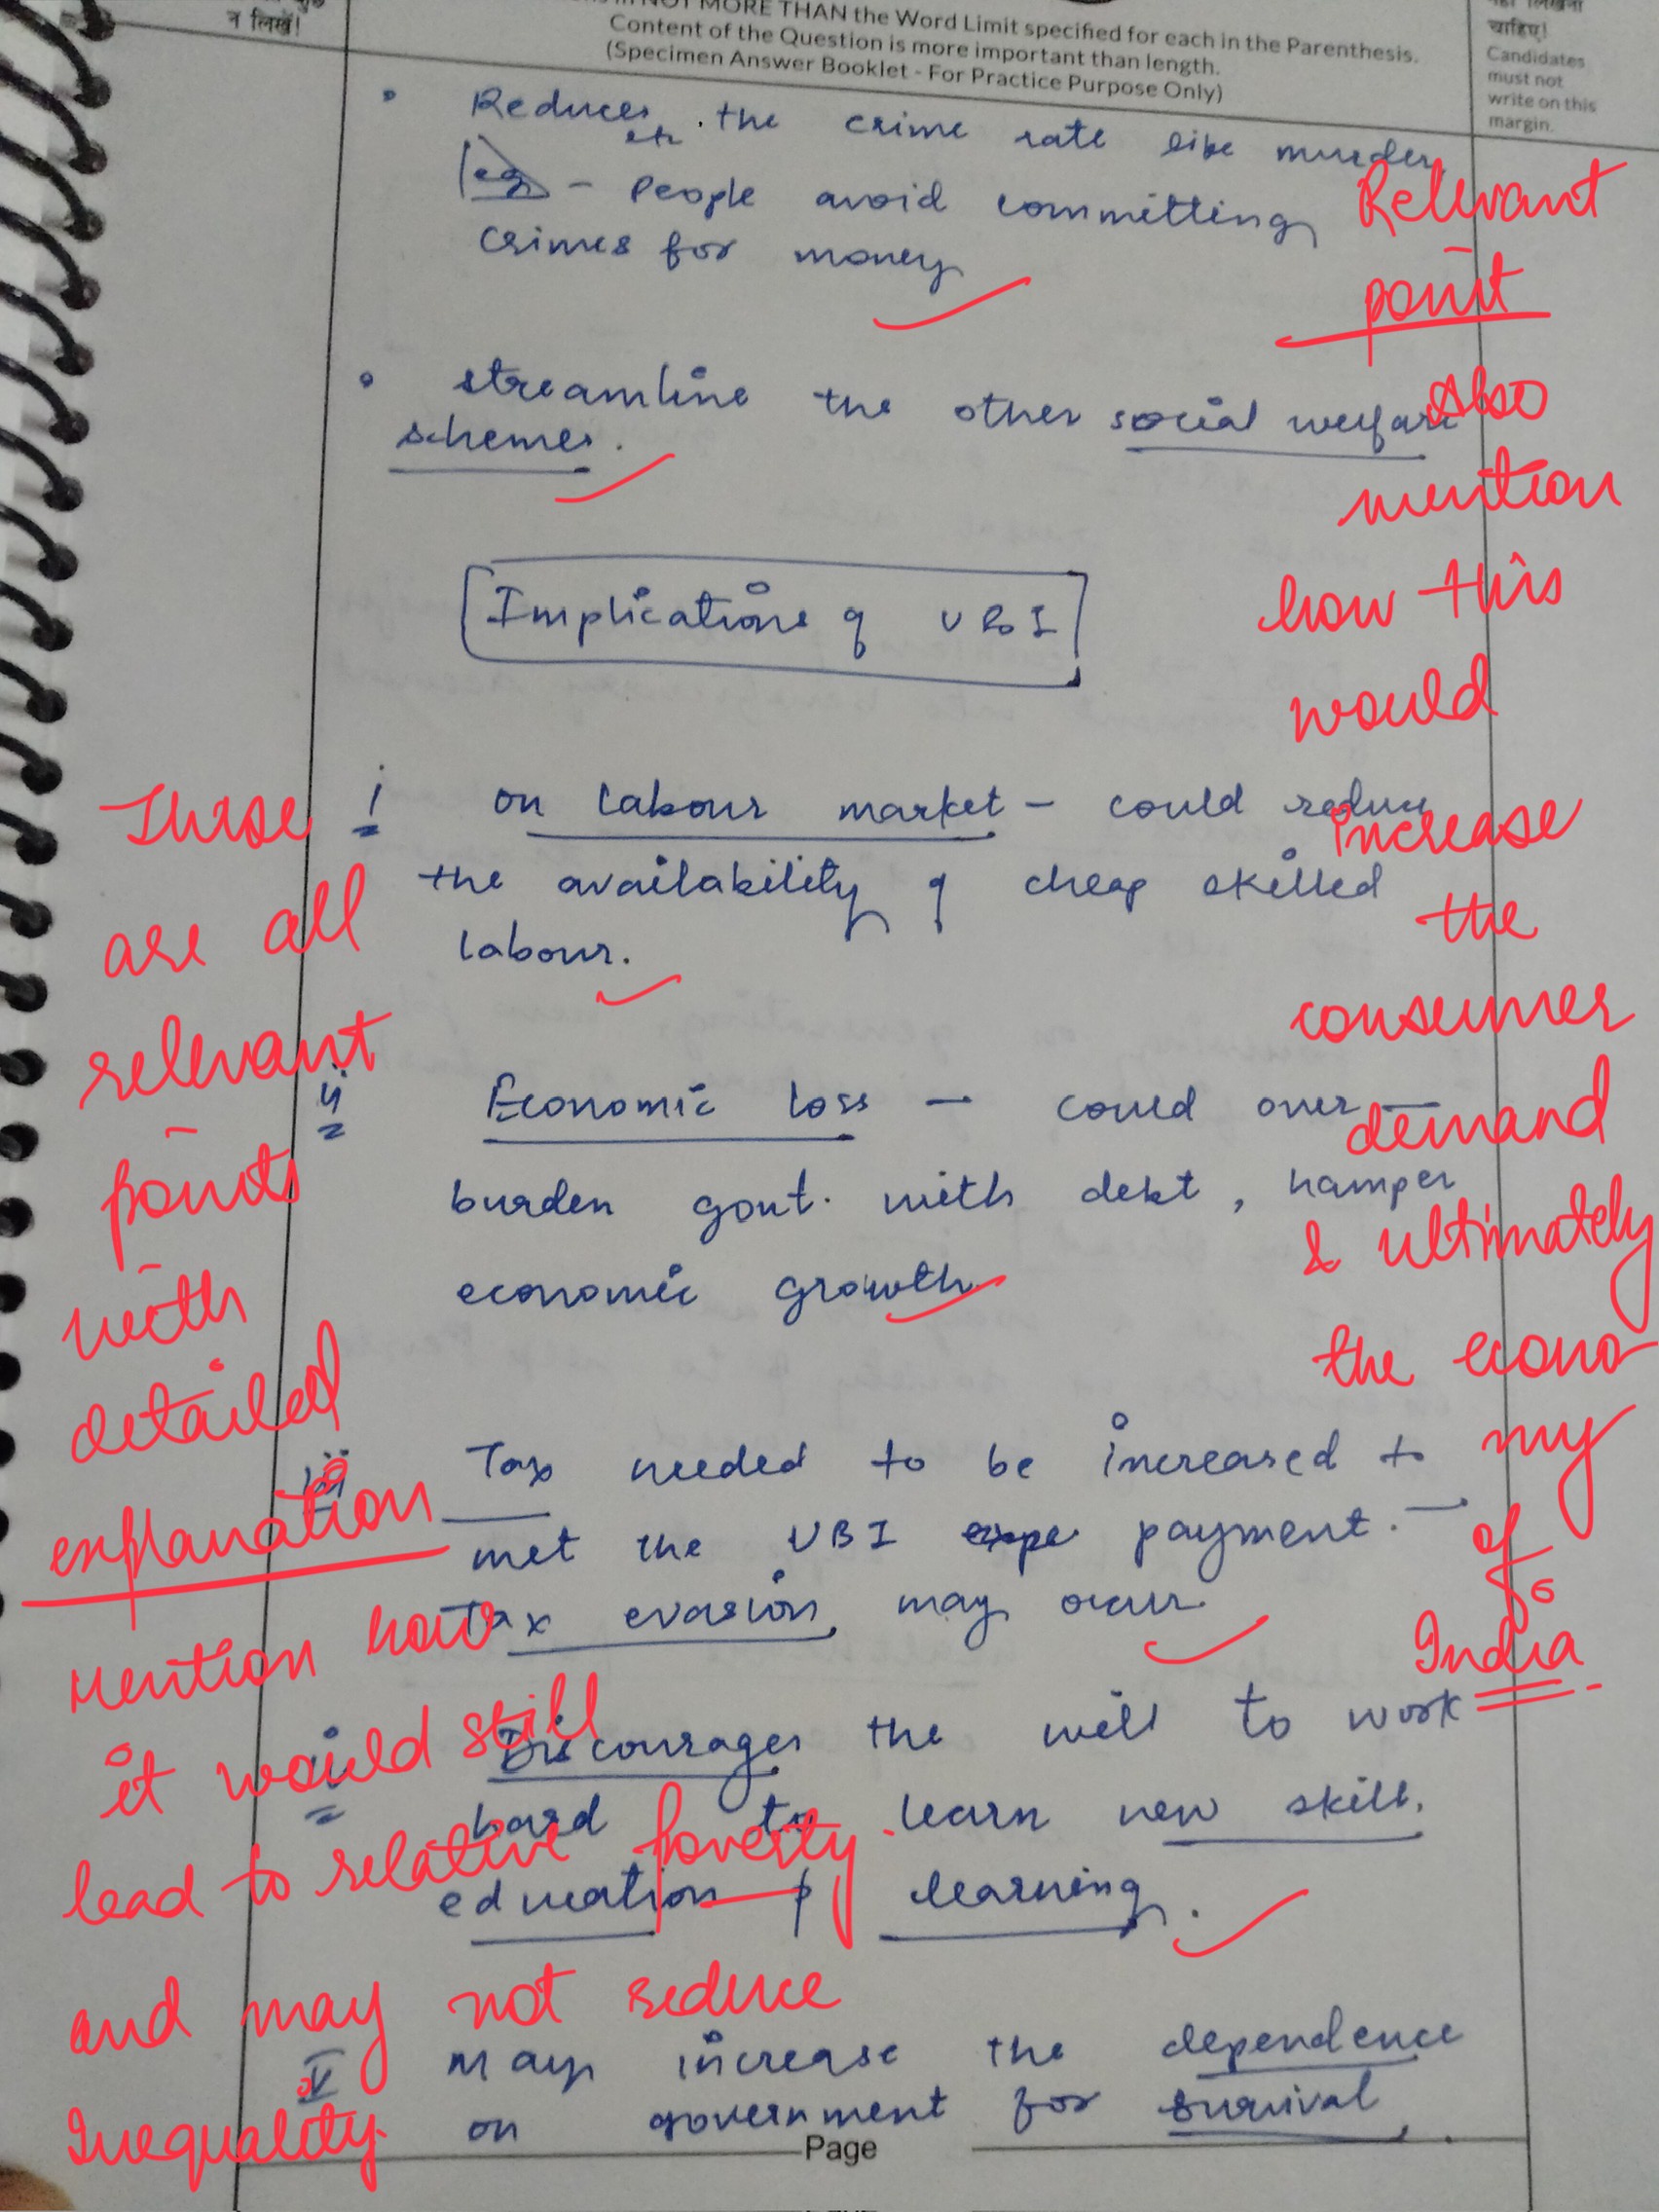 न लिखें!
NOT MORE THAN the Word Limit specified for each in the Parenthesis.
Content of the Question is more important than length.
(Specimen Answer Booklet - For Practice Purpose Only)
चाहिए!
Candidates
must not
write on this
margin.
• Reduces the crime rate like murder
etc
eg - People avoid committing
crimes for money
• streamline the other social welfare
schemes.
Implications of UBI
i on labour market - could reduce
the availability of cheap skilled
labour.
ii Economic loss - could over-
burden govt. with debt, hamper
economic growth
iii Tax needed to be increased to
met the UBI payment. —
Tax evasion may occur.
Discourages the will to work
hard to learn new skill.
education & learning.
V May increase the dependence
on government for survival.
Page
Relevant
point
Also
mention
how this
would
increase
the
consumer
demand
& ultimately
the econo-
my
of
India
These
are all
relevant
points
with
detailed
explanation
Mention how
it would still
lead to relative poverty.
and may not reduce
Inequality.